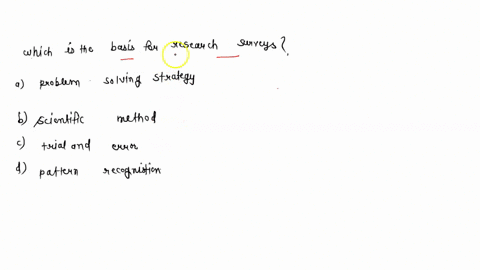 which is the basis for research surveys?
a) problem solving strategy
b) scientific method
c) trial and error
d) pattern recognistion